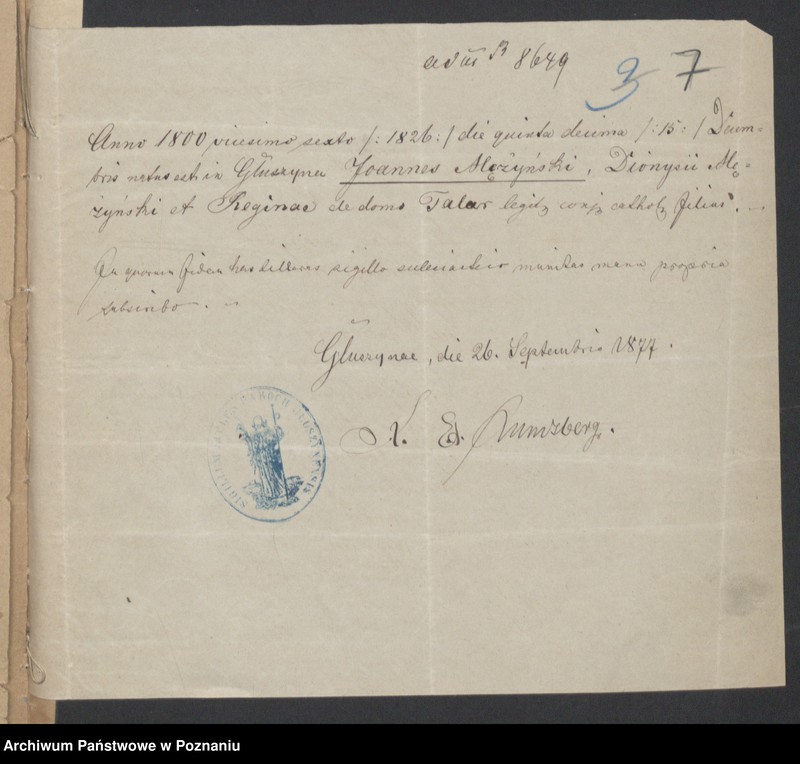 8649
37
Anno 1800 vicesimo sexto /: 1826 :/ die quinta decima /: 15 :/ Decem-
bris natus est in Głuszyna Joannes Mężyński, Dionysii Mę-
żyński et Reginae de domo Talar legit conj cathol filius.
In quorum fidem has litteras sigillo ecclesiastico munitas manu propria
subscribo.
Głuszynae, die 26. Septembris 1877.
X. Ed.
SIGILLUM
Archiwum Państwowe w Poznaniu